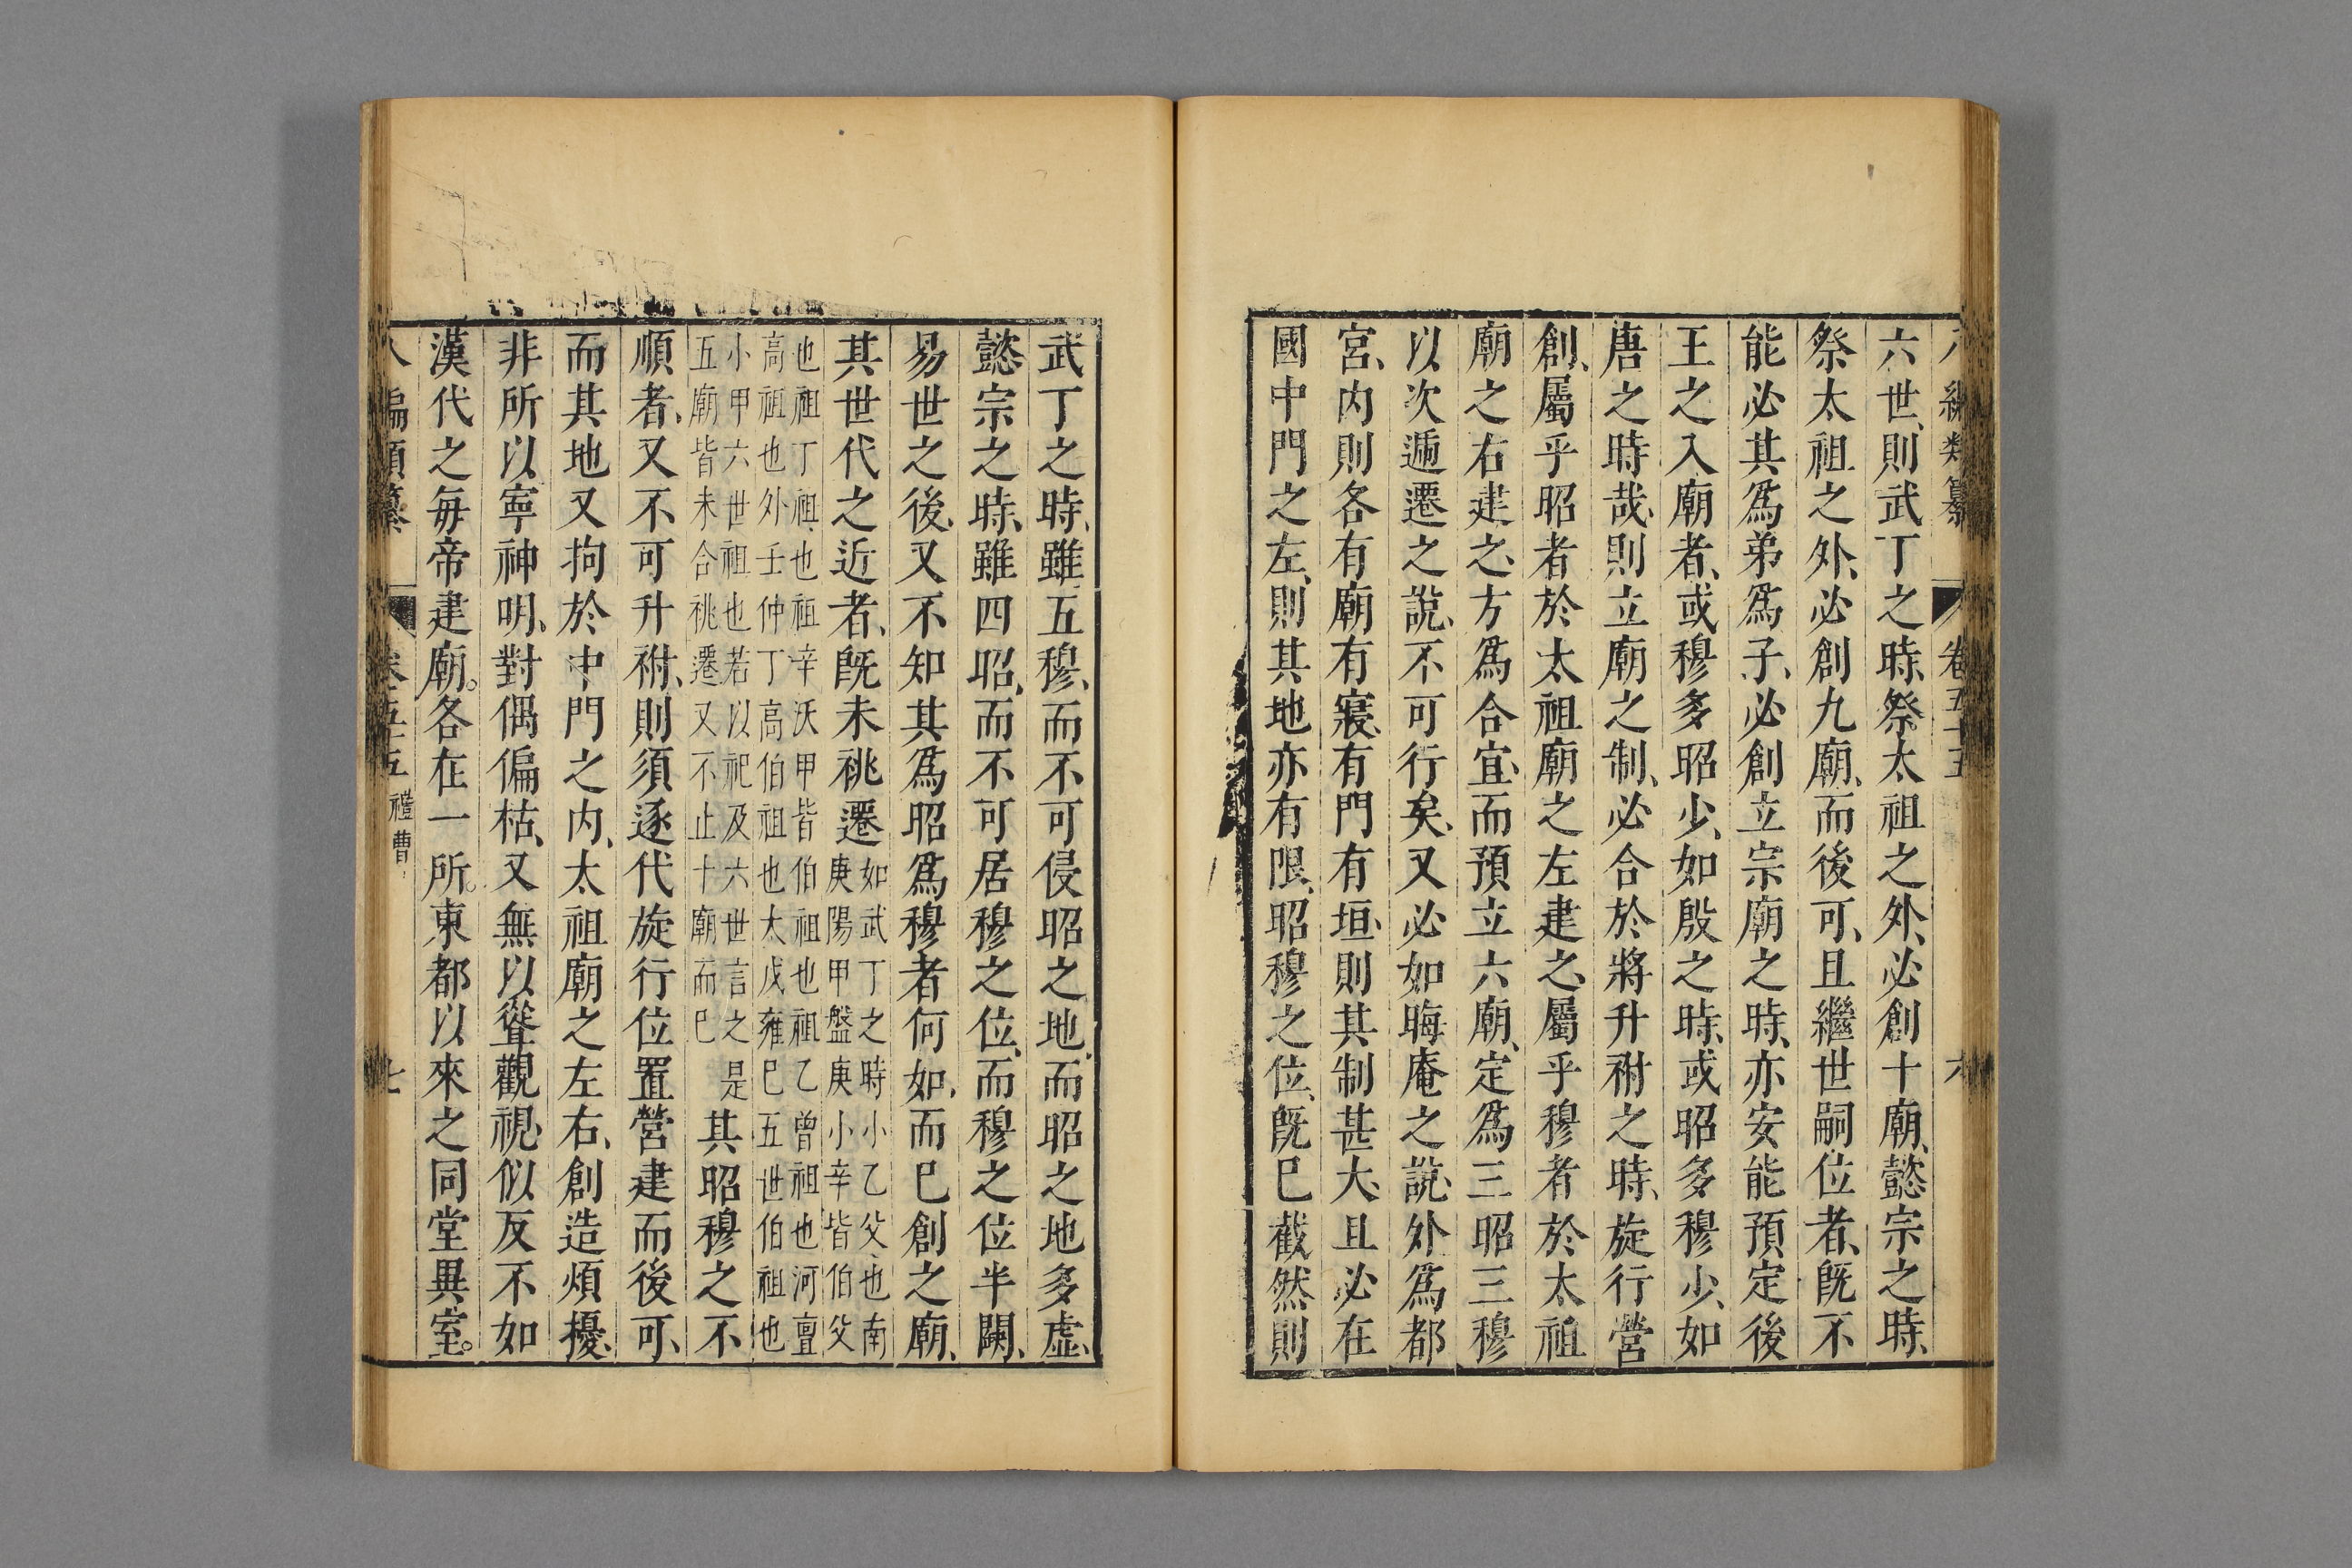 編類纂 卷五十五 六
六世、則武丁之時、祭太祖之外、必創十廟、懿宗之時、
祭太祖之外、必創九廟、而後可、且繼世嗣位者、旣不
能必其爲弟爲子、必創立宗廟之時、亦安能預定後
王之入廟者、或穆多昭少、如殷之時、或昭多穆少、如
唐之時哉、則立廟之制、必合於將升祔之時、旋行營
創、屬乎昭者於太祖廟之左建之、屬乎穆者於太祖
廟之右建之、方爲合宜、而預立六廟、定爲三昭三穆
以次遞遷之說、不可行矣、又必如晦庵之說、外爲都
宮、內則各有廟有寢、有門有垣、則其制甚大、且必在
國中門之左、則其地亦有限、昭穆之位、旣巳截然、則
武丁之時、雖五穆、而不可侵昭之地、而昭之地多虛、
懿宗之時、雖四昭、而不可居穆之位、而穆之位半闕、
易世之後、又不知其爲昭爲穆者何如、而巳創之廟、
其世代之近者、旣未祧遷如武丁之時小乙父也南
庚陽甲盤庚小辛皆伯父
也祖丁祖也祖辛沃甲皆伯祖也祖乙曾祖也河亶
高祖也外壬仲丁高伯祖也太戊雍巳五世伯祖也
小甲六世祖也若以祀及六世言之是
五廟皆未合祧遷又不止十廟而巳其昭穆之不
順者、又不可升祔、則須逐代旋行位置營建而後可、
而其地又拘於中門之內、太祖廟之左右、創造煩擾、
非所以寧神明、對偶偏枯、又無以聳觀視、似反不如
漢代之每帝建廟。各在一所。東都以來之同堂異室。
八編類纂 卷五十五 禮曹 七